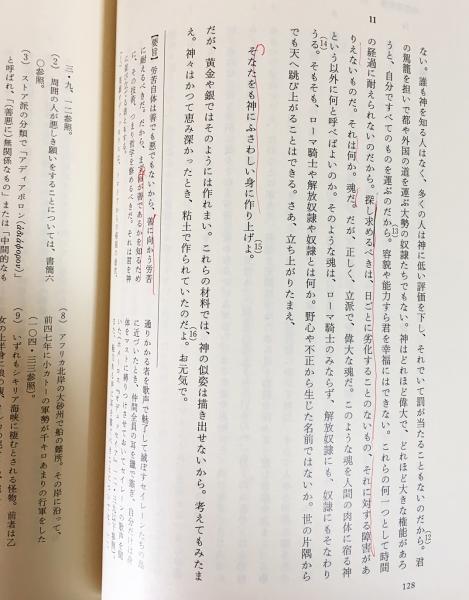 11
ない。誰も神を知る人はなく、多くの人は神に低い評価を下し、それでいて罰が当たることもないのだから。(12)君
の駕籠を担いで都や外国の道を運ぶ大勢の奴隷たちでもない。神はどれほど偉大で、どれほど大きな権能があろ
うと、自分ですべてのものを運ぶのだから。(13)容貌や能力すら君を幸福にはできない。これらの何一つとして時間
の経過に耐えられないのだから。探し求めるべきは、日ごとに劣化することのないもの、それに対する障害があ
りえないものだ。それは何か。魂だ。だが、正しく、立派で、偉大な魂だ。このような魂を人間の肉体に宿る神
という以外に何と呼べばよいのか。そのような魂は、ローマ騎士のみならず、解放奴隷にも、奴隷にもそなわり
うる。(14)そもそも、ローマ騎士や解放奴隷や奴隷とは何か。野心や不正から生じた名前ではないか。世の片隅から
でも天へ跳び上がることはできる。さあ、立ち上がりたまえ、
そなたをも神にふさわしい身に作り上げよ。(15)
だが、黄金や銀ではそのようには作れまい。これらの材料では、神の似姿は描き出せないから。考えてもみたま
え。神々はかつて恵み深かったとき、粘土で作られていたのだよ。(16)お元気で。
【要旨】労苦自体は善でも悪でもないから、善に向かう労苦
に耐えるべきだ。だから、まず何が善であるかを知るため
128
通りかかる者を歌声で魅了して滅ぼすセイレーンたちの島
に近づいたとき、仲間全員の耳を蠟で塞ぎ、自分だけは身
体をマストに縛りつけさせておいてセイレーンの歌声を聞
三・九、一二参照。
(2) 周囲の人が悪しき願いをすることについては、書簡六
〇参照。
(3) ストア派の分類で「アディアポロン(ἀδιάφορον)」
と呼ばれ、「(善悪に)無関係なもの」または「中間的なも
(8) アフリカ北岸の大砂州で船の難所。その岸に沿って、
前四七年に小カトーの軍勢が千キロあまりの行軍をした
(一〇四・三三参照)。
(9) いずれもシキリア海峡に棲むとされる怪物。前者は乙